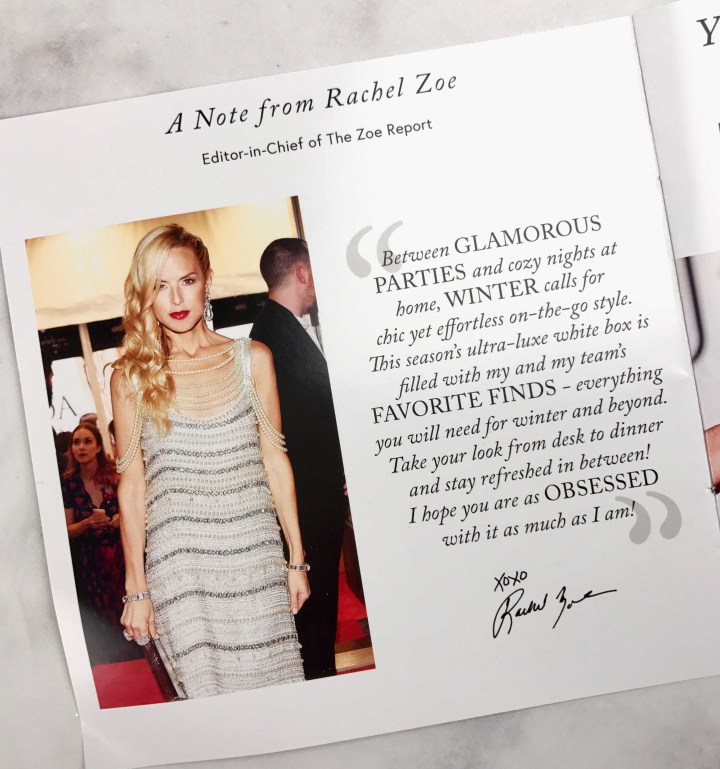 A Note from Rachel Zoe
Editor-in-Chief of The Zoe Report
“Between GLAMOROUS
PARTIES and cozy nights at
home, WINTER calls for
chic yet effortless on-the-go style.
This season's ultra-luxe white box is
filled with my and my team's
FAVORITE FINDS – everything
you will need for winter and beyond.
Take your look from desk to dinner
and stay refreshed in between!
I hope you are as OBSESSED
with it as much as I am!”
XOXO
Rachel Zoe
Y